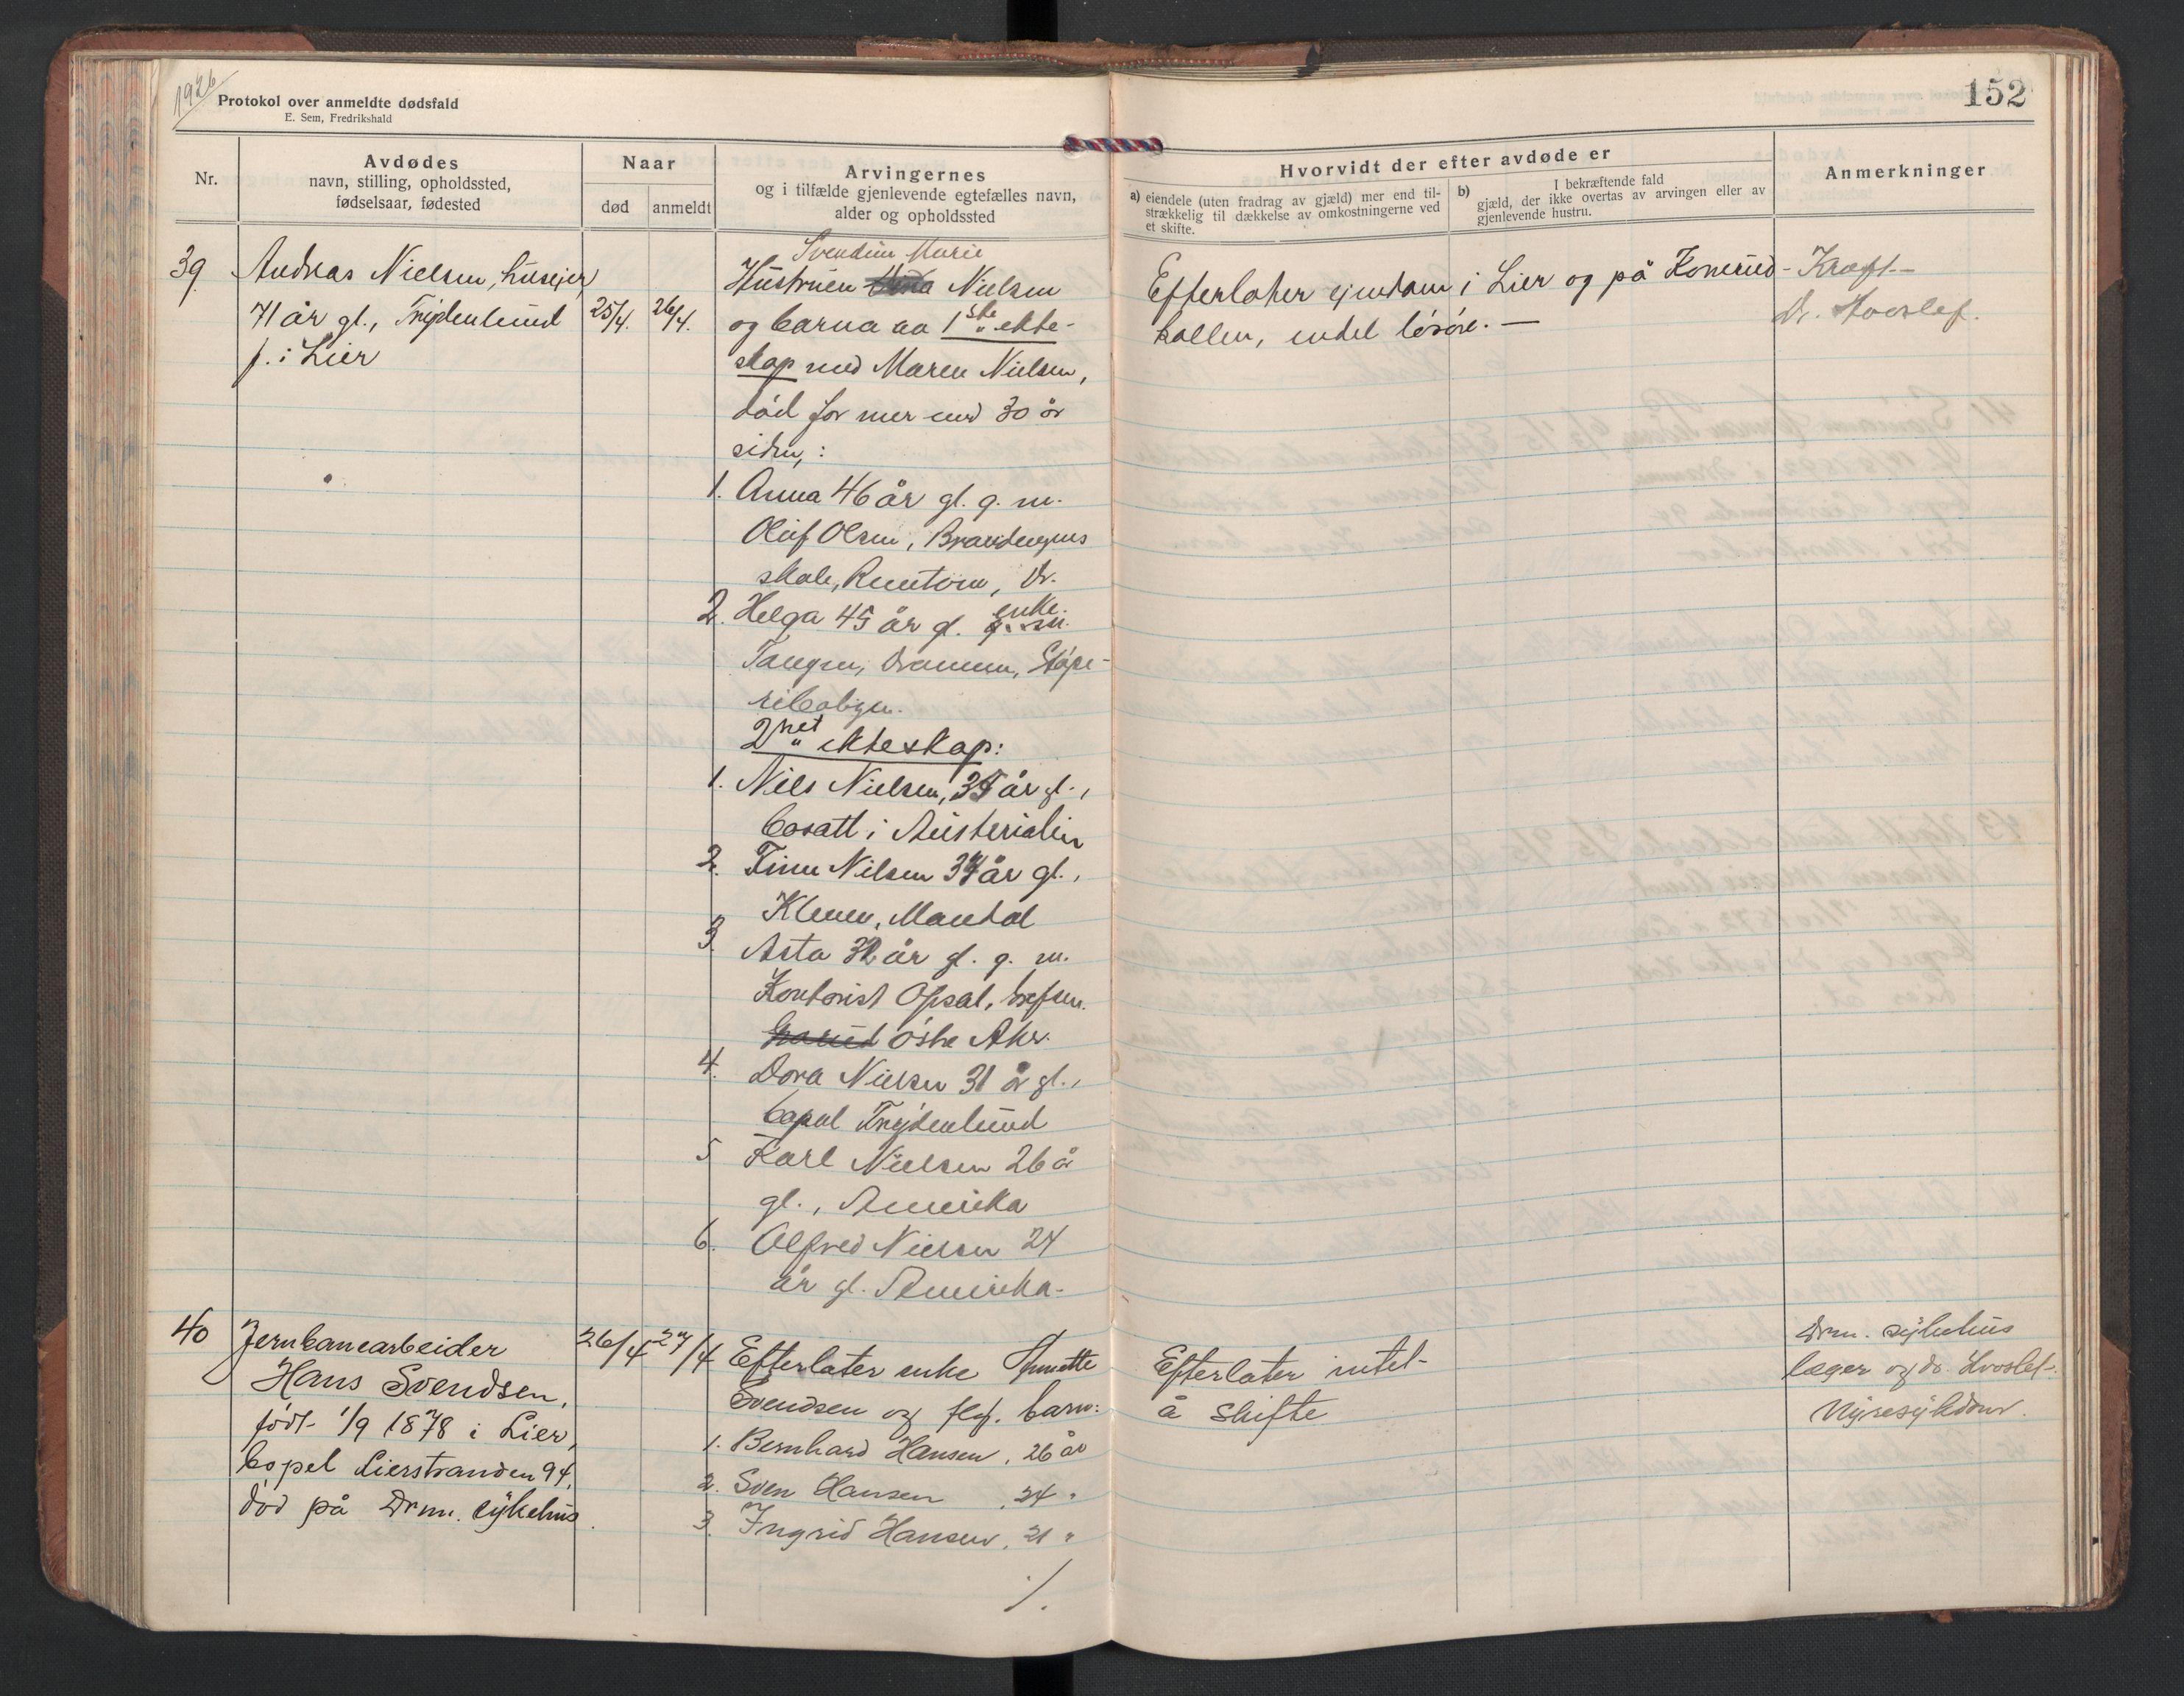 1926
Protokol over anmeldte dødsfald
E. Sem, Fredrikshald
152
Nr.
Avdødes
navn, stilling, opholdssted,
fødselsaar, fødested
Naar
død
anmeldt
Arvingernes
og i tilfælde gjenlevende egtefælles navn,
alder og opholdssted
Hvorvidt der efter avdøde er
a) eiendele (uten fradrag av gjæld) mer end til-
strækkelig til dækkelse av omkostningerne ved
et skifte.
b) I bekræftende fald
gjæld, der ikke overtas av arvingen eller av
gjenlevende hustru.
Anmerkninger
39
Andreas Nielsen, huseier,
71 år gl., Frydenlund
f. i Lier
25/4.
26/4.
Svendine Marie
Hustruen Nielsen
og barna aa 1ste ekte-
skap med Maren Nielsen,
död for mer end 30 år
siden,:
1. Anna 46 år gl. g. m.
Oluf Olsen, Brandengens
skole, Dr.
2. Helga 45 år gl. g. m.
enke.
Tangen, Drammen, Støpe-
ribolign.
2net ekteskap:
1. Nils Nielsen, 35 år gl.,
bosatt i Austerialien
2. Finn Nilsen 34 år gl.,
Kleven, Mandal
3. Asta 32 år gl. g. m.
Kontorist Opsal, Grefsen.
Östre Aker.
4. Dora Nielsen 31 år gl.,
bopel Frydenlund
5 Karl Nielsen 26 år
gl., Amerika
6. Alfred Nielsen 24
år gl. Amerika.
Efterlater eiendom i Lier og på Konerud-
kollen, endel lösöre. —
Kræft —
Dr. Hvoslef.
40
Jernbanearbeider
Hans Svendsen,
født 1/9 1878 i Lier,
bopel Lierstranden 94,
död på Drm. sykehus.
26/4
27/4
Efterlater enke Annette
Svendsen og flg. barn:
1. Bernhard Hansen, 26 år
2. Sven Hansen , 24 "
3. Ingrid Hansen, 21 "
./.
Efterlater intet
å skifte
Drm. sykehus
læger og dr. Hvoslef.
Nyresykdom.